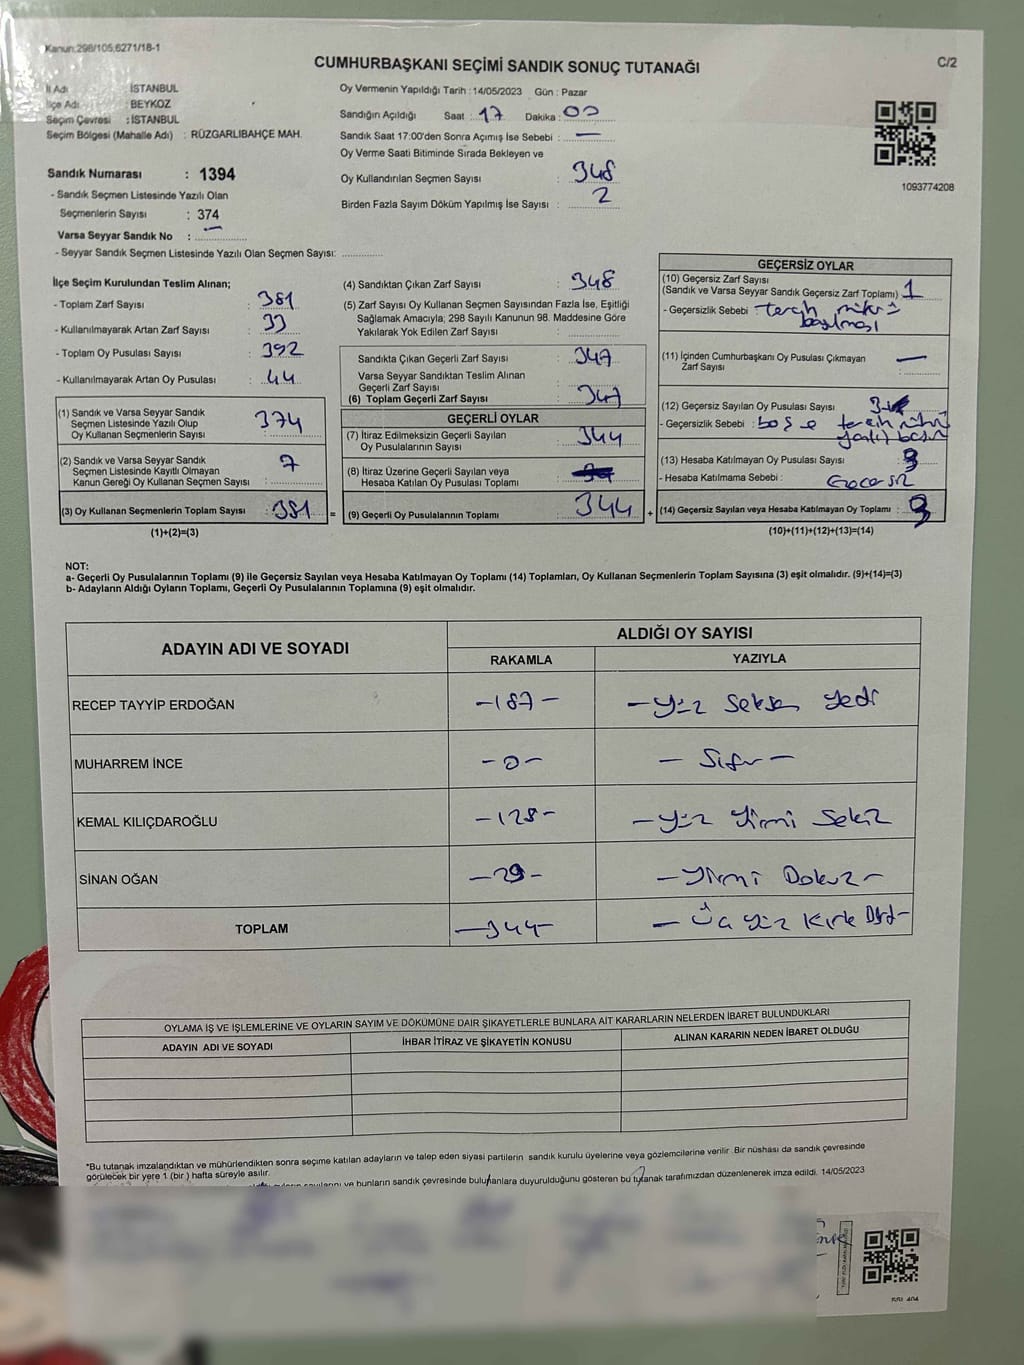 Kanun:298/105,6271/18-1
CUMHURBAŞKANI SEÇİMİ SANDIK SONUÇ TUTANAĞI
C/2
İl Adı : İSTANBUL
İlçe Adı : BEYKOZ
Seçim Çevresi : İSTANBUL
Seçim Bölgesi (Mahalle Adı) : RÜZGARLIBAHÇE MAH.
Sandık Numarası : 1394
- Sandık Seçmen Listesinde Yazılı Olan
Seçmenlerin Sayısı : 374
Varsa Seyyar Sandık No : —
- Seyyar Sandık Seçmen Listesinde Yazılı Olan Seçmen Sayısı:
Oy Vermenin Yapıldığı Tarih : 14/05/2023 Gün : Pazar
Sandığın Açıldığı Saat : 17 Dakika : 00
Sandık Saat 17:00'den Sonra Açımış İse Sebebi : —
Oy Verme Saati Bitiminde Sırada Bekleyen ve
Oy Kullandırılan Seçmen Sayısı : 348
Birden Fazla Sayım Döküm Yapılmış İse Sayısı : 2
1093774208
İlçe Seçim Kurulundan Teslim Alınan;
- Toplam Zarf Sayısı : 381
- Kullanılmayarak Artan Zarf Sayısı : 33
- Toplam Oy Pusulası Sayısı : 392
- Kullanılmayarak Artan Oy Pusulası : 44
(1) Sandık ve Varsa Seyyar Sandık
Seçmen Listesinde Yazılı Olup
Oy Kullanan Seçmenlerin Sayısı : 374
(2) Sandık ve Varsa Seyyar Sandık
Seçmen Listesinde Kayıtlı Olmayan
Kanun Gereği Oy Kullanan Seçmen Sayısı : 7
(3) Oy Kullanan Seçmenlerin Toplam Sayısı : 381 =
(1)+(2)=(3)
(4) Sandıktan Çıkan Zarf Sayısı : 348
(5) Zarf Sayısı Oy Kullanan Seçmen Sayısından Fazla İse, Eşitliği
Sağlamak Amacıyla; 298 Sayılı Kanunun 98. Maddesine Göre
Yakılarak Yok Edilen Zarf Sayısı :
Sandıkta Çıkan Geçerli Zarf Sayısı : 347
Varsa Seyyar Sandıktan Teslim Alınan
Geçerli Zarf Sayısı :
(6) Toplam Geçerli Zarf Sayısı : 347
GEÇERLİ OYLAR
(7) İtiraz Edilmeksizin Geçerli Sayılan
Oy Pusulalarının Sayısı : 344
(8) İtiraz Üzerine Geçerli Sayılan veya
Hesaba Katılan Oy Pusulası Toplamı :
(9) Geçerli Oy Pusulalarının Toplamı : 344 +
GEÇERSİZ OYLAR
(10) Geçersiz Zarf Sayısı
(Sandık ve Varsa Seyyar Sandık Geçersiz Zarf Toplamı) : 1
- Geçersizlik Sebebi : tercih mührü
basılması
(11) İçinden Cumhurbaşkanı Oy Pusulası Çıkmayan
Zarf Sayısı : —
(12) Geçersiz Sayılan Oy Pusulası Sayısı : 3
- Geçersizlik Sebebi : boş
(13) Hesaba Katılmayan Oy Pusulası Sayısı : 3
- Hesaba Katılmama Sebebi :
(14) Geçersiz Sayılan veya Hesaba Katılmayan Oy Toplamı : 3
(10)+(11)+(12)+(13)=(14)
NOT:
a- Geçerli Oy Pusulalarının Toplamı (9) ile Geçersiz Sayılan veya Hesaba Katılmayan Oy Toplamı (14) Toplamları, Oy Kullanan Seçmenlerin Toplam Sayısına (3) eşit olmalıdır. (9)+(14)=(3)
b- Adayların Aldığı Oyların Toplamı, Geçerli Oy Pusulalarının Toplamına (9) eşit olmalıdır.
ADAYIN ADI VE SOYADI
ALDIĞI OY SAYISI
RAKAMLA YAZIYLA
RECEP TAYYİP ERDOĞAN -187- -Yüz Seksen Yedi
MUHARREM İNCE -0- -Sıfır-
KEMAL KILIÇDAROĞLU -128- -Yüz Yirmi Sekiz
SİNAN OĞAN -29- -Yirmi Dokuz-
TOPLAM -344- -Üç Yüz Kırk Dört-
OYLAMA İŞ VE İŞLEMLERİNE VE OYLARIN SAYIM VE DÖKÜMÜNE DAİR ŞİKAYETLERLE BUNLARA AİT KARARLARIN NELERDEN İBARET BULUNDUKLARI
ADAYIN ADI VE SOYADI İHBAR İTİRAZ VE ŞİKAYETİN KONUSU ALINAN KARARIN NEDEN İBARET OLDUĞU
*Bu tutanak imzalandıktan ve mühürlendikten sonra seçime katılan adayların ve talep eden siyasi partilerin sandık kurulu üyelerine veya gözlemcilerine verilir. Bir nüshası da sandık çevresinde
görülecek bir yere 1 (bir ) hafta süreyle asılır.
ve bunların sandık çevresinde bulunanlara duyurulduğunu gösteren bu tutanak tarafımızdan düzenlenerek imza edildi. 14/05/2023